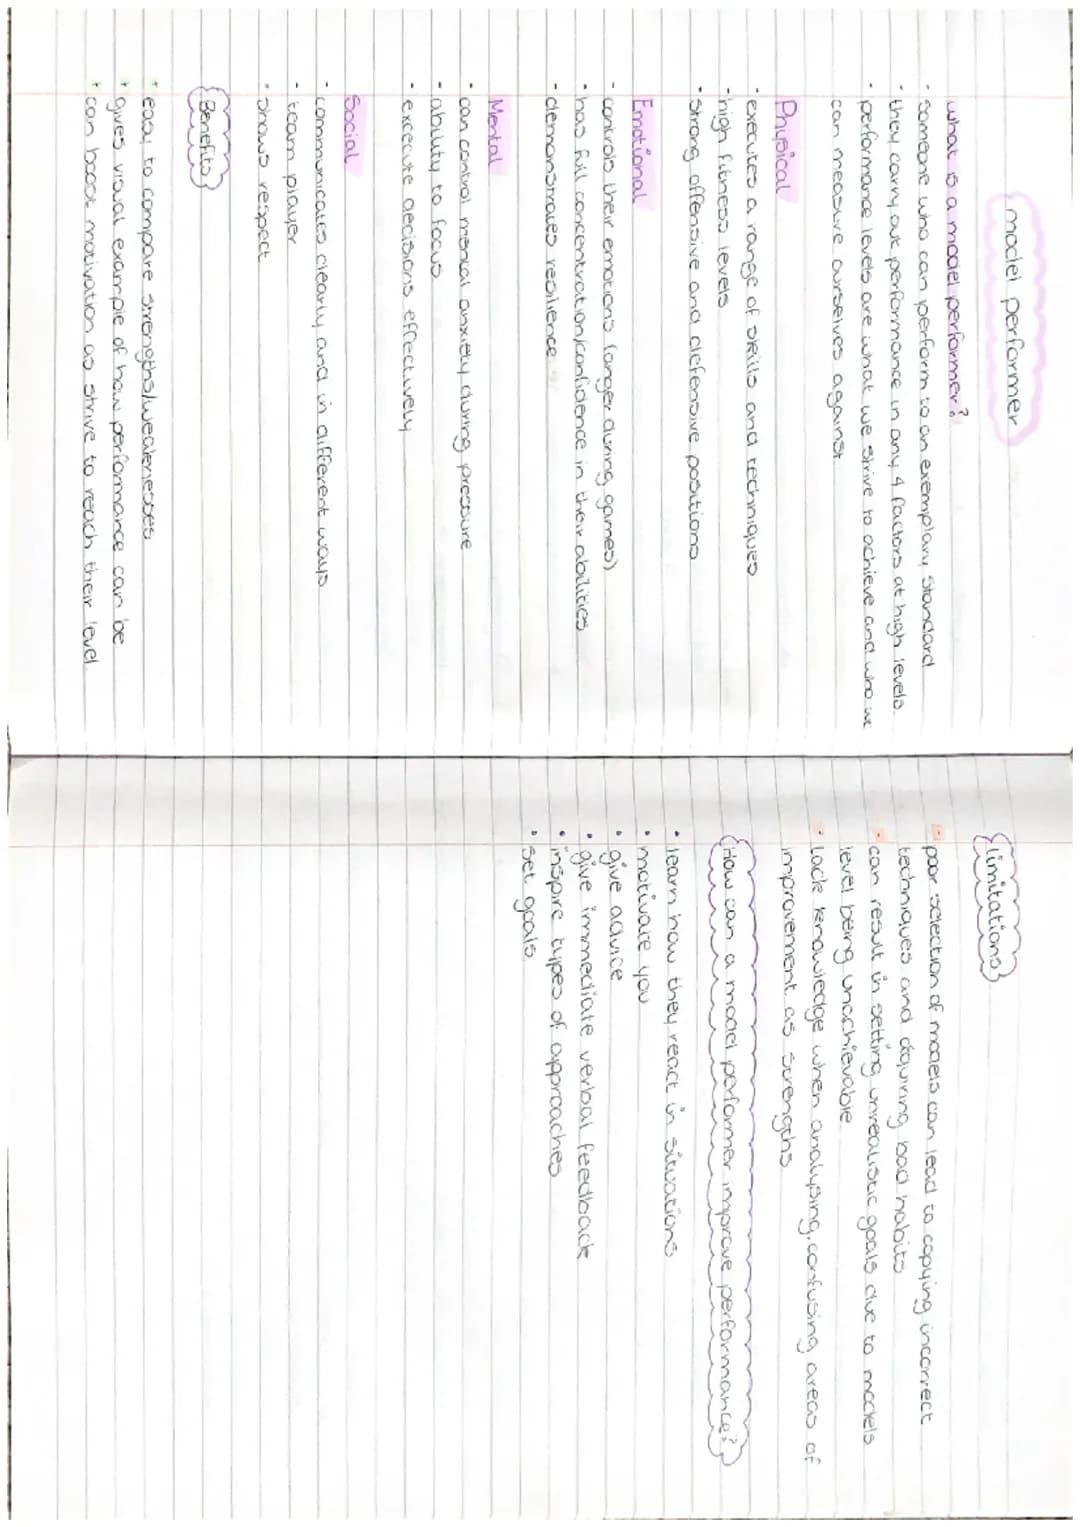 model performer
what is a model performer?
- someone who can perform to an exemplary standard
- they carry out performance in any 4 factors at high levels.
- performance levels are what we strive to achieve and who we
can measure ourselves against
Physical
- executes a range of skills and techniques
- high fitness levels
- strong offensive and defensive positions
Emotional
- controls their emotions (anger during games)
- has full concentration/confidence in their abilities
- demonstrates resilience
Mental
- can control mental anxiety during pressure
- ability to focus
- execute decisions effectively
Social
- communicates clearly and in different ways
- team player
- shows respect
Benefits
+ easy to compare strengths/weaknesses
+ gives visual example of how performance can be
+ can boost motivation as strive to reach their level
limitations
- poor selection of models can lead to copying incorrect
techniques and aquiring bad habits
- can result in setting unrealistic goals due to models
level being unachievable
- Lack knowledge when analysing, confusing areas of
improvement as strengths
How can a model performer improve performance?
• learn how they react in situations
• motivate you
• give advice
• give immediate verbal feedback
• inspire types of approaches
• set goals